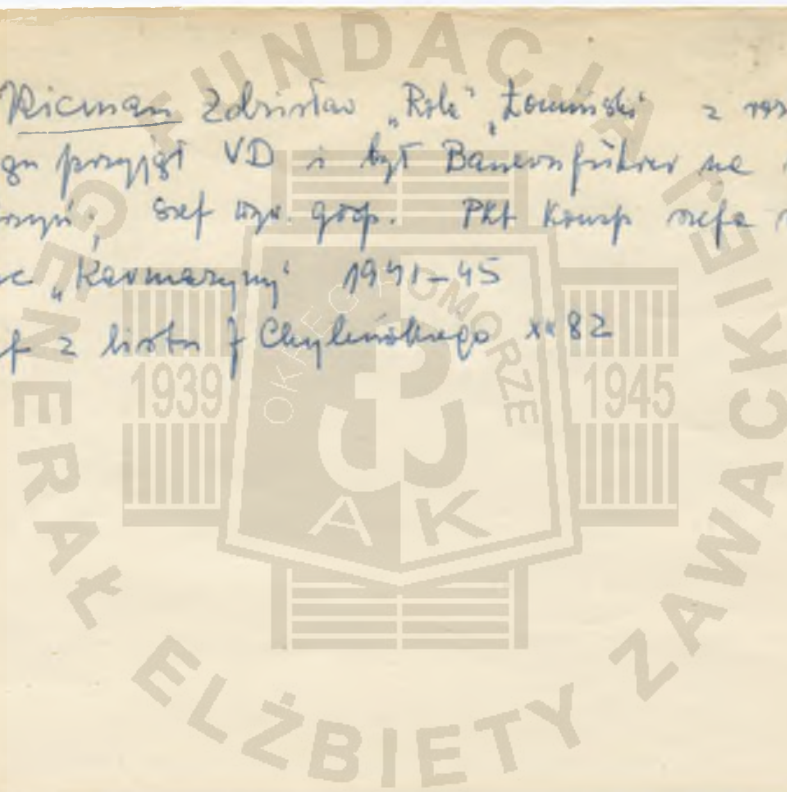 Ricman Zdzisław „Rola” „Łomiński” z
przyjął VD i był Bauernführer na
szef wyw. gosp. PKT Konsp szefa
„Karmazyny” 1941-45
z listu J Chylińskiego XI 82
FUNDACJA GENERAŁ ELŻBIETY ZAWACKIEJ
OKRĘG POMORZE
1939
1945
AK